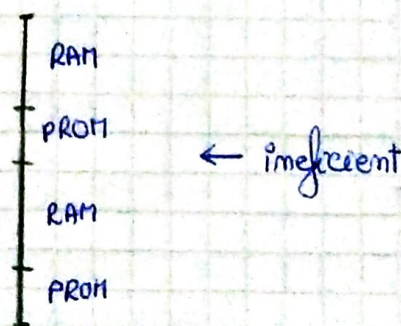 RAM
PROM
← ineficient
RAM
PROM